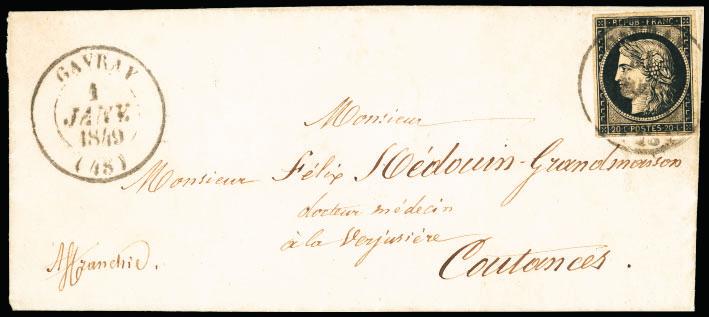 GAVRAY
1
JANV
1849
(48)
REPUB. FRANC.
20 C POSTES 20 C
Monsieur
Monsieur Félix Hédouin-Grandmaison
docteur médecin
à la Verjusière
Coutances.
Affranchie.